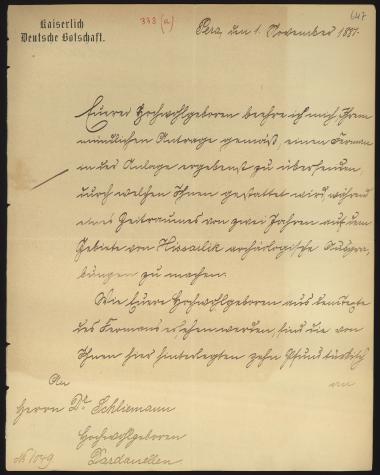 Kaiserlich
Deutsche Botschaft.
338 (a)
647
Pera, den 1. November 1887.
Euerer Hochwohlgeboren beehre ich mich, Ihrem
mündlichen Antrage gemäß, einen Ferman
in der Anlage ergebenst zu übersenden,
durch welchen Ihnen gestattet wird, während
eines Zeitraumes von zwei Jahren auf dem
Gebiete von Hissarlik archäologische Ausgra-
bungen zu machen.
Wie Euere Hochwohlgeboren aus dem Texte
des Fermans ersehen werden, sind die von
Ihnen hier hinterlegten zehn Pfund türkisch
an
An
Herrn Dr. Schliemann
Hochwohlgeboren
Dardanellen